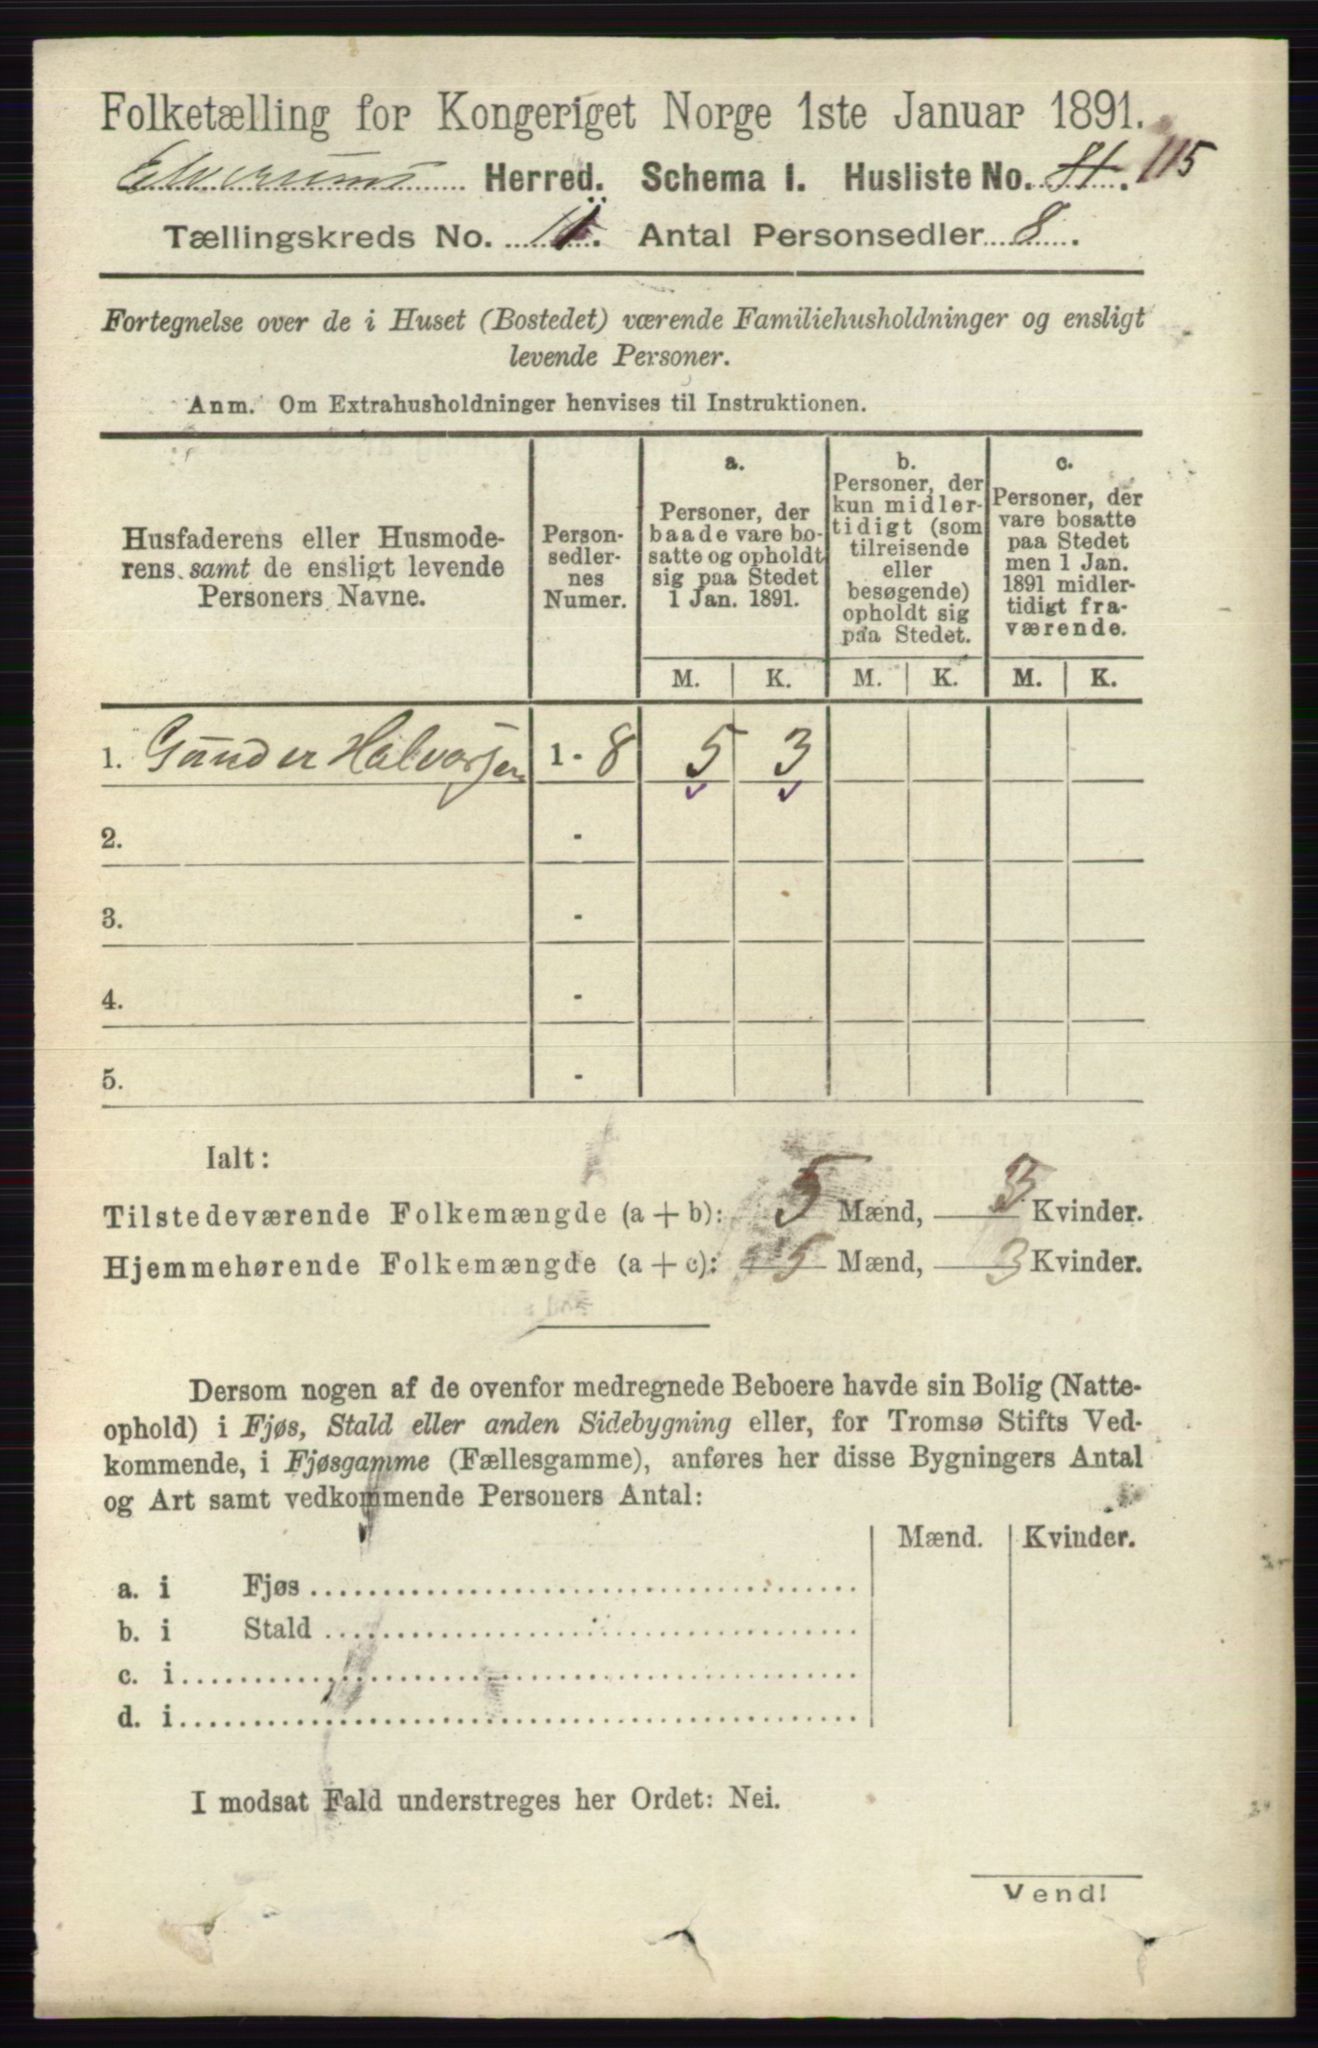 Folketælling for Kongeriget Norge 1ste Januar 1891.
Elverums Herred. Schema I. Husliste No. 115
Tællingskreds No. 11. Antal Personsedler 8.
Fortegnelse over de i Huset (Bostedet) værende Familiehusholdninger og ensligt
levende Personer.
Anm. Om Extrahusholdninger henvises til Instruktionen.
Husfaderens eller Husmode-
rens samt de ensligt levende
Personers Navne.
Person-
sedler-
nes
Numer.
a.
Personer, der
baade vare bo-
satte og opholdt
sig paa Stedet
1 Jan. 1891.
b.
Personer, der
kun midler-
tidigt (som
tilreisende
eller
besøgende)
opholdt sig
paa Stedet.
c.
Personer, der
vare bosatte
paa Stedet
men 1 Jan.
1891 midler-
tidigt fra-
værende.
M. K. M. K. M. K.
1. Gunder Halvorsen 1 - 8 5 3
2. -
3. -
4. -
5. -
Ialt:
Tilstedeværende Folkemængde (a + b): 5 Mænd, 3 Kvinder.
Hjemmehørende Folkemængde (a + c): 5 Mænd, 3 Kvinder.
Dersom nogen af de ovenfor medregnede Beboere havde sin Bolig (Natte-
ophold) i Fjøs, Stald eller anden Sidebygning eller, for Tromsø Stifts Ved-
kommende, i Fjøsgamme (Fællesgamme), anføres her disse Bygningers Antal
og Art samt vedkommende Personers Antal:
Mænd. Kvinder.
a. i Fjøs
b. i Stald
c. i
d. i
I modsat Fald understreges her Ordet: Nei.
Vend!